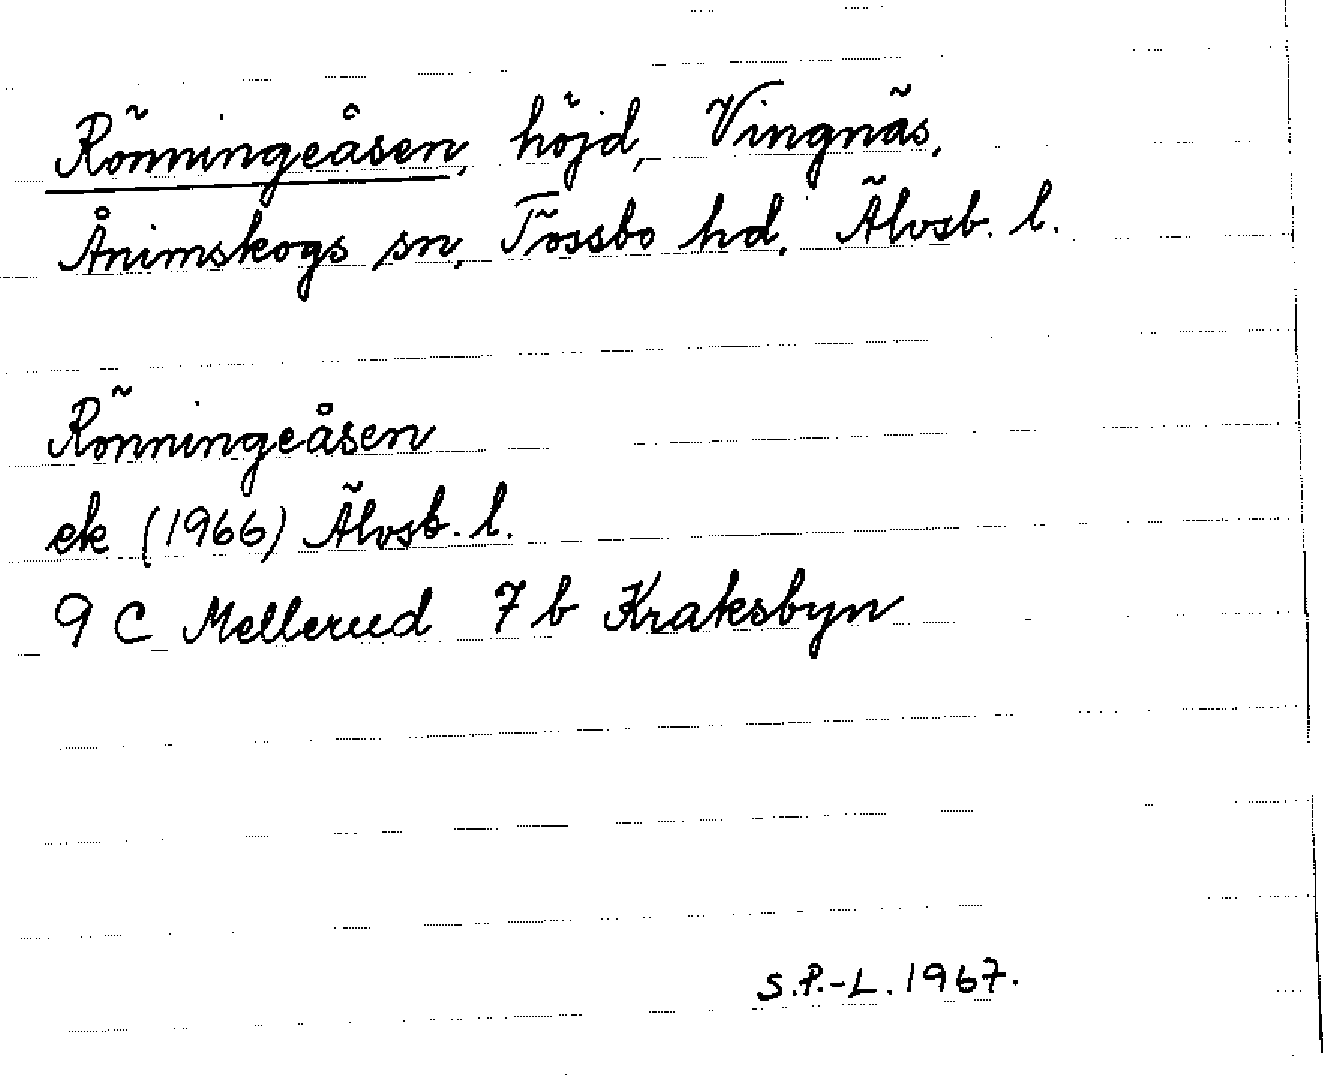 Rönningeåsen, höjd, Vingnäs,
Ånimskogs sn, Tössbo hd, Älvsb. l.
Rönningeåsen
ek (1966) Älvsb. l.
9 C Mellerud 7 b Kraksbyn
S.P.-L. 1967.